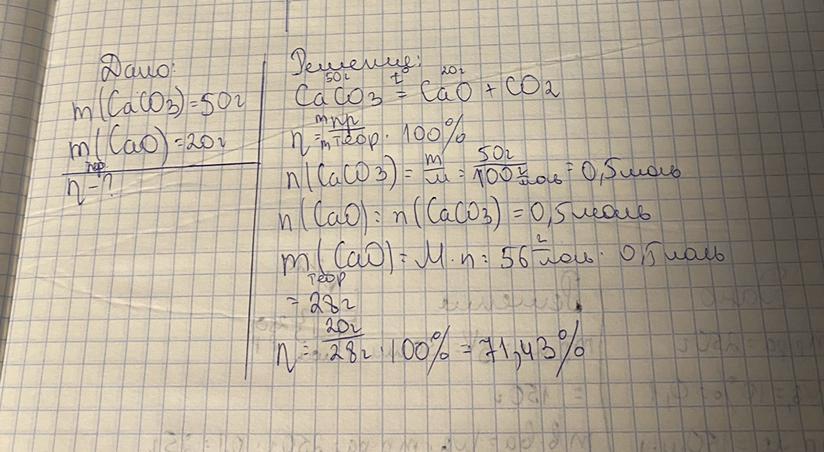 Дано:
m(CaCO3)=50г
m(CaO)=20г
пр
η-?
Решение:
50г t° 20г
CaCO3 = CaO + CO2
η = mпр/mтеор. · 100%
n(CaCO3) = m/M = 50г/100г/моль = 0,5моль
n(CaO) = n(CaCO3) = 0,5моль
m(CaO) = M·n = 56г/моль · 0,5моль
теор
= 28г
η = 20г/28г · 100% = 71,43%